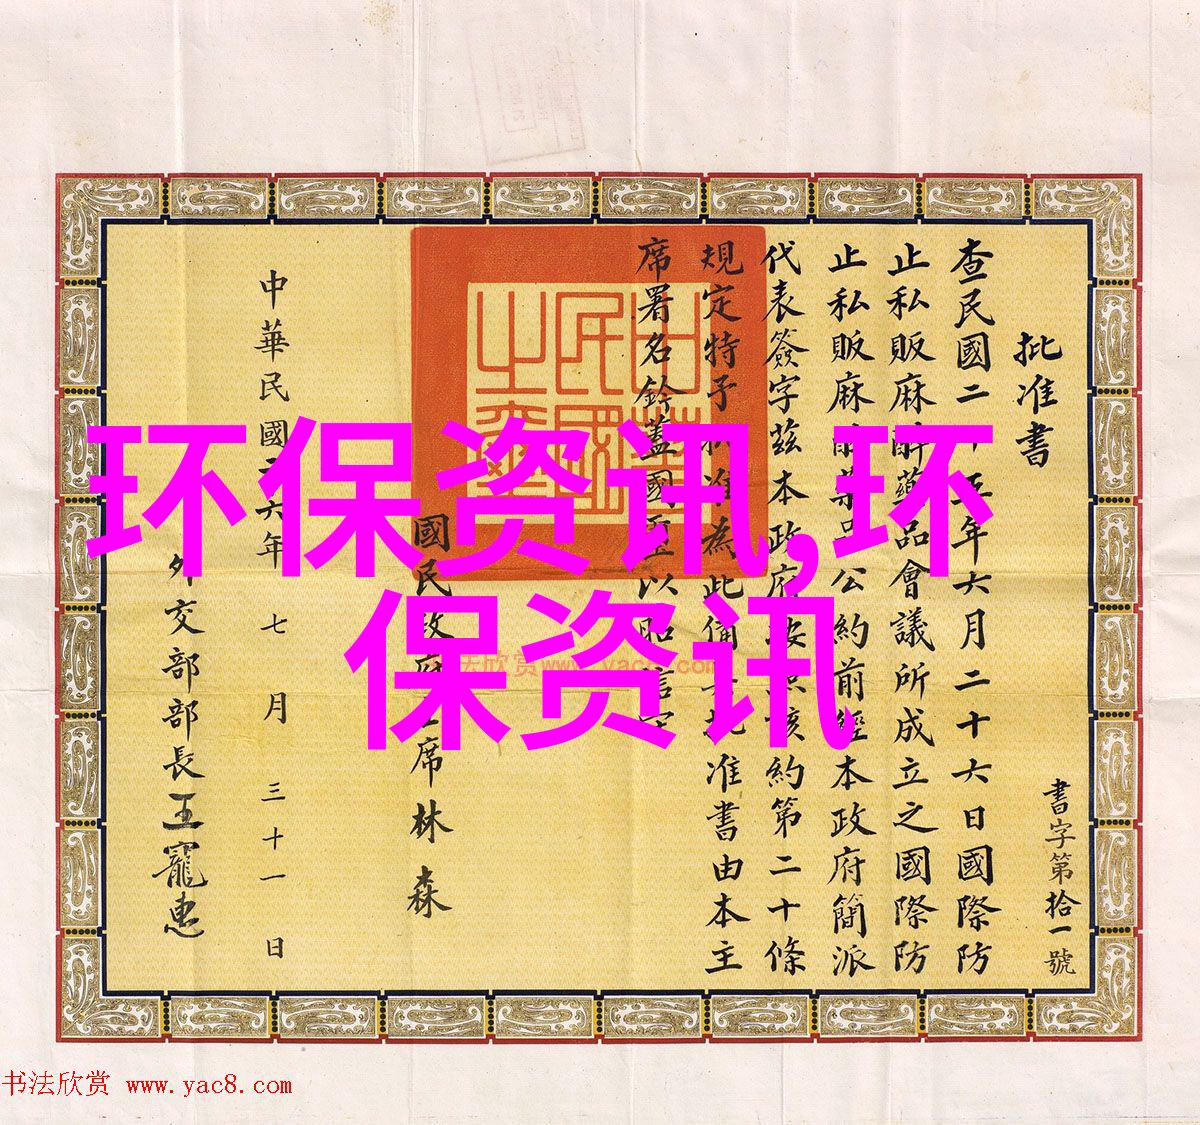 批准書
書字第拾一號
查民國二十五年六月二十六日國際防
止私販麻醉藥品會議所成立之國際防
止私販麻醉藥品公約前經本政府簡派
代表簽字茲本政府 該約第二十條
規定特予批准為此備 批准書由本主
席署名鈐蓋國璽以昭信守
國民政府主席林森
中華民國二六年七月三十一日
外交部部長王寵惠
環保资讯,环
保资讯
书法欣赏 www.yac8.com
书法欣赏 www.yac8.com